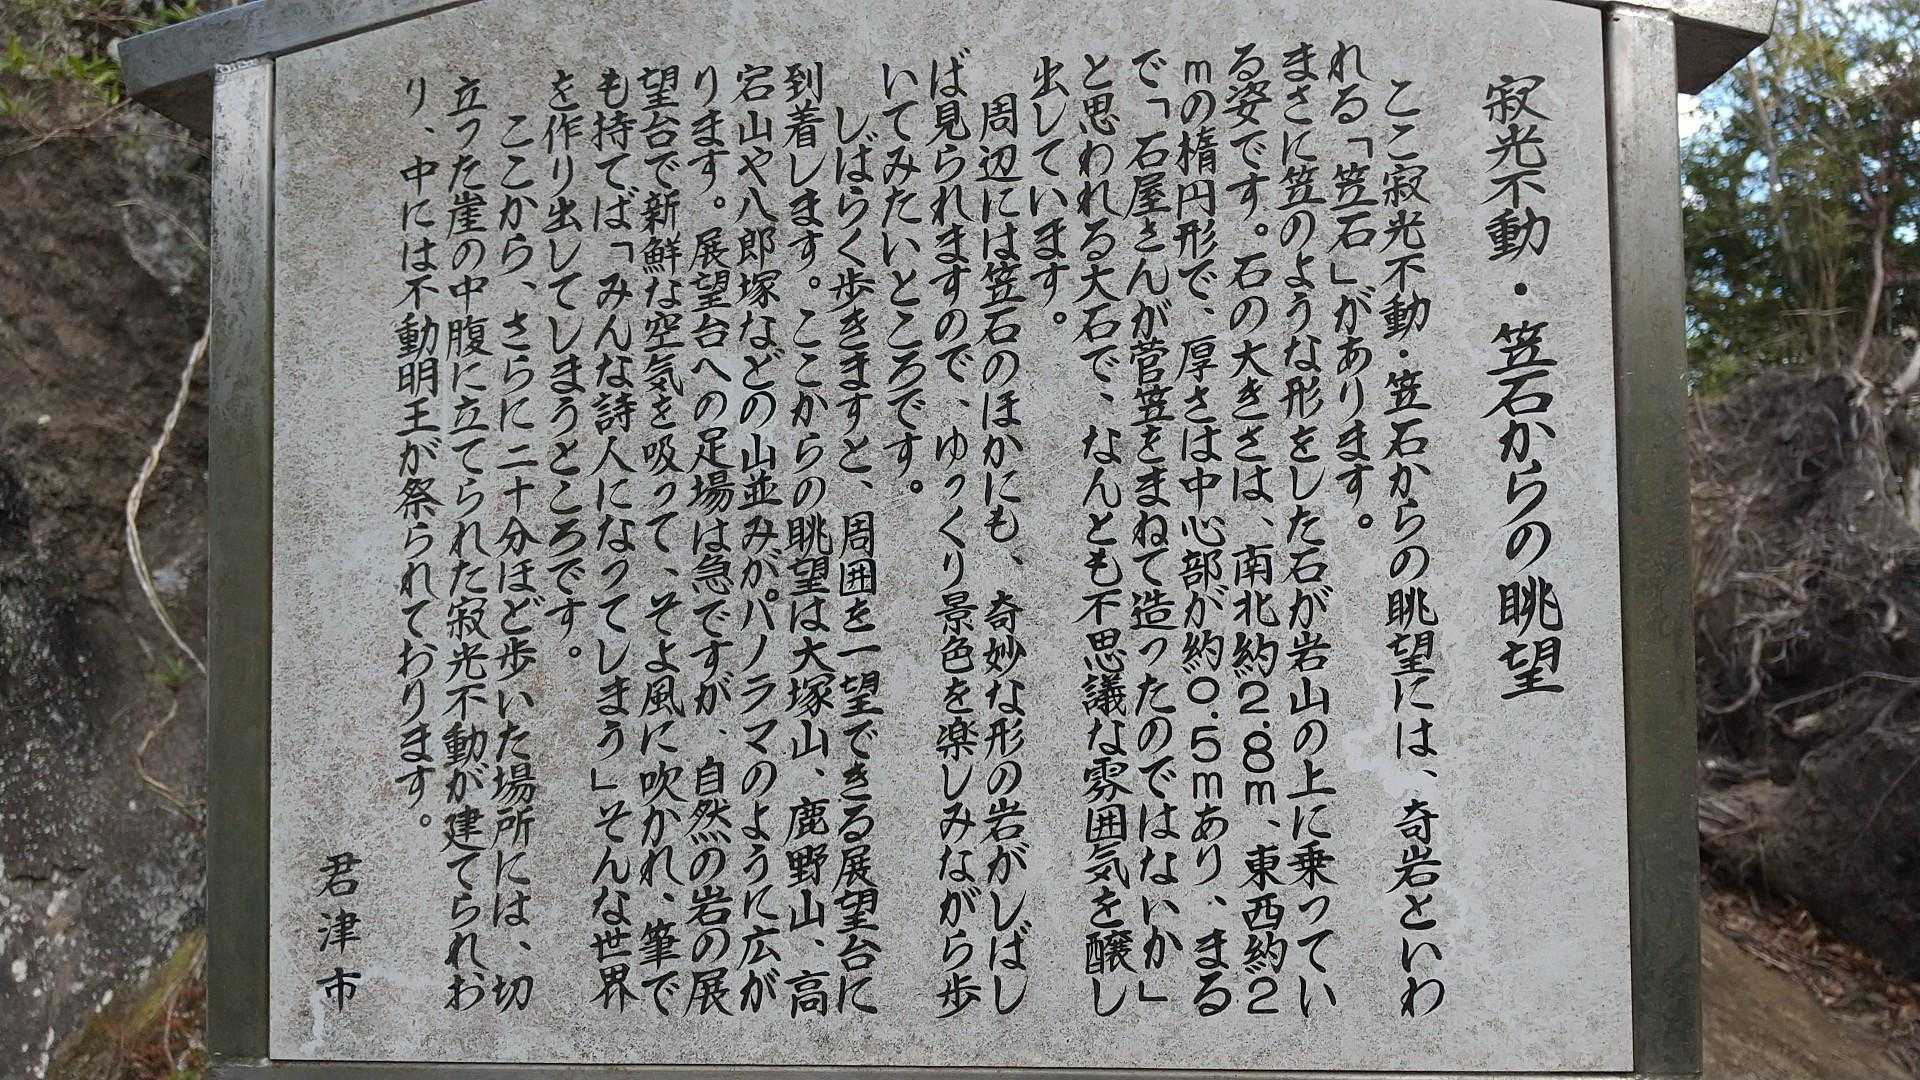 寂光不動・笠石からの眺望
ここ寂光不動・笠石からの眺望には、奇岩といわ
れる「笠石」があります。
まさに笠のような形をした石が岩山の上に乗ってい
る姿です。石の大きさは、南北約2.8m、東西約2
mの楕円形で、厚さは中心部が約0.5mあり、まる
で「石屋さんが菅笠をまねて造ったのではないか」
と思われる大石で、なんとも不思議な雰囲気を醸し
出しています。
周辺には笠石のほかにも、奇妙な形の岩がしばし
ば見られますので、ゆっくり景色を楽しみながら歩
いてみたいところです。
しばらく歩きますと、周囲を一望できる展望台に
到着します。ここからの眺望は大塚山、鹿野山、高
宕山や八郎塚などの山並みがパノラマのように広が
ります。展望台への足場は急ですが、自然の岩の展
望台で新鮮な空気を吸って、そよ風に吹かれ、筆で
も持てば「みんな詩人になってしまう」そんな世界
を作り出してしまうところです。
ここから、さらに二十分ほど歩いた場所には、切
立った崖の中腹に立てられた寂光不動が建てられお
り、中には不動明王が祭られております。
君津市